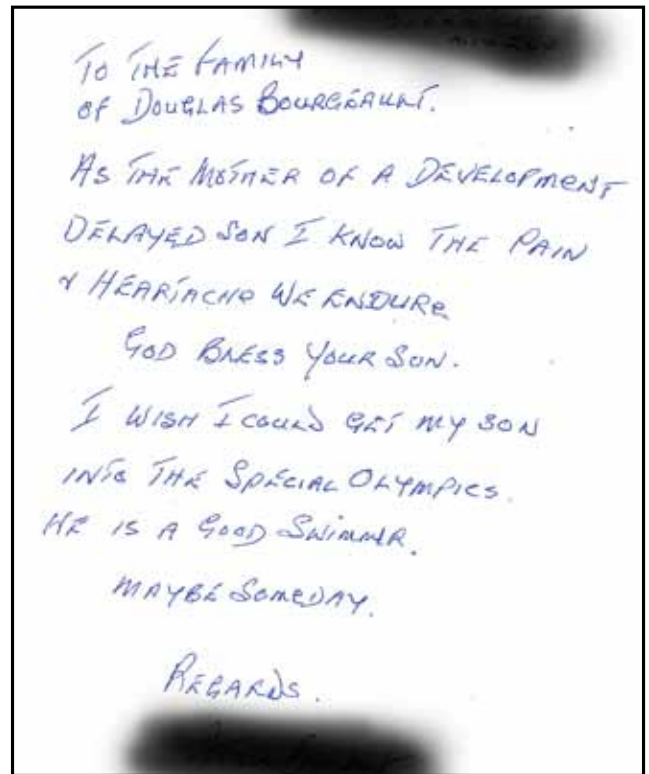 TO THE FAMILY
OF DOUGLAS BOURGEAULT.
AS THE MOTHER OF A DEVELOPMENT
DELAYED SON I KNOW THE PAIN
& HEARTACHE WE ENDURE
GOD BLESS YOUR SON.
I WISH I COULD GET MY SON
INTO THE SPECIAL OLYMPICS.
HE IS A GOOD SWIMMER.
MAYBE SOMEDAY.
REGARDS.